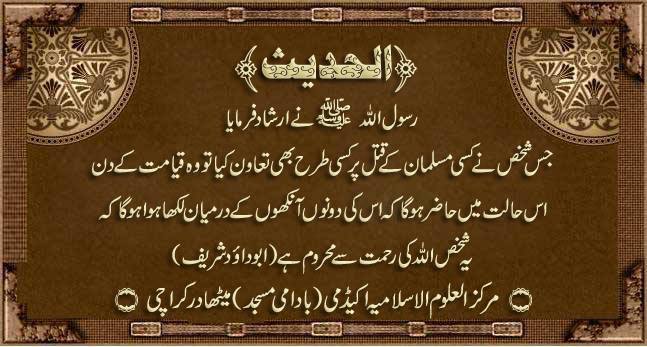 الحدیث
رسول اللہ ﷺ نے ارشاد فرمایا
جس شخص نے کسی مسلمان کے قتل پر کسی طرح بھی تعاون کیا تو وہ قیامت کے دن
اس حالت میں حاضر ہوگا کہ اس کی دونوں آنکھوں کے درمیان لکھا ہوا ہوگا کہ
یہ شخص اللہ کی رحمت سے محروم ہے (ابوداؤد شریف)
مرکز العلوم الاسلامیہ اکیڈمی (بادامی مسجد) میٹھادر کراچی